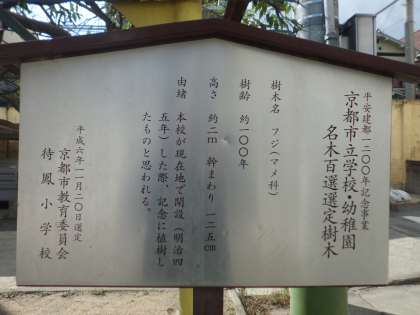 平安建都一二〇〇年記念事業
京都市立学校・幼稚園
名木百選選定樹木
樹木名 フジ(マメ科)
樹齢 約一〇〇年
高さ 約二m 幹まわり 一二五cm
由緒 本校が現在地で開設(明治四
五年)した際、記念に植樹し
たものと思われる。
平成六年一一月二〇日選定
京都市教育委員会
待鳳小学校